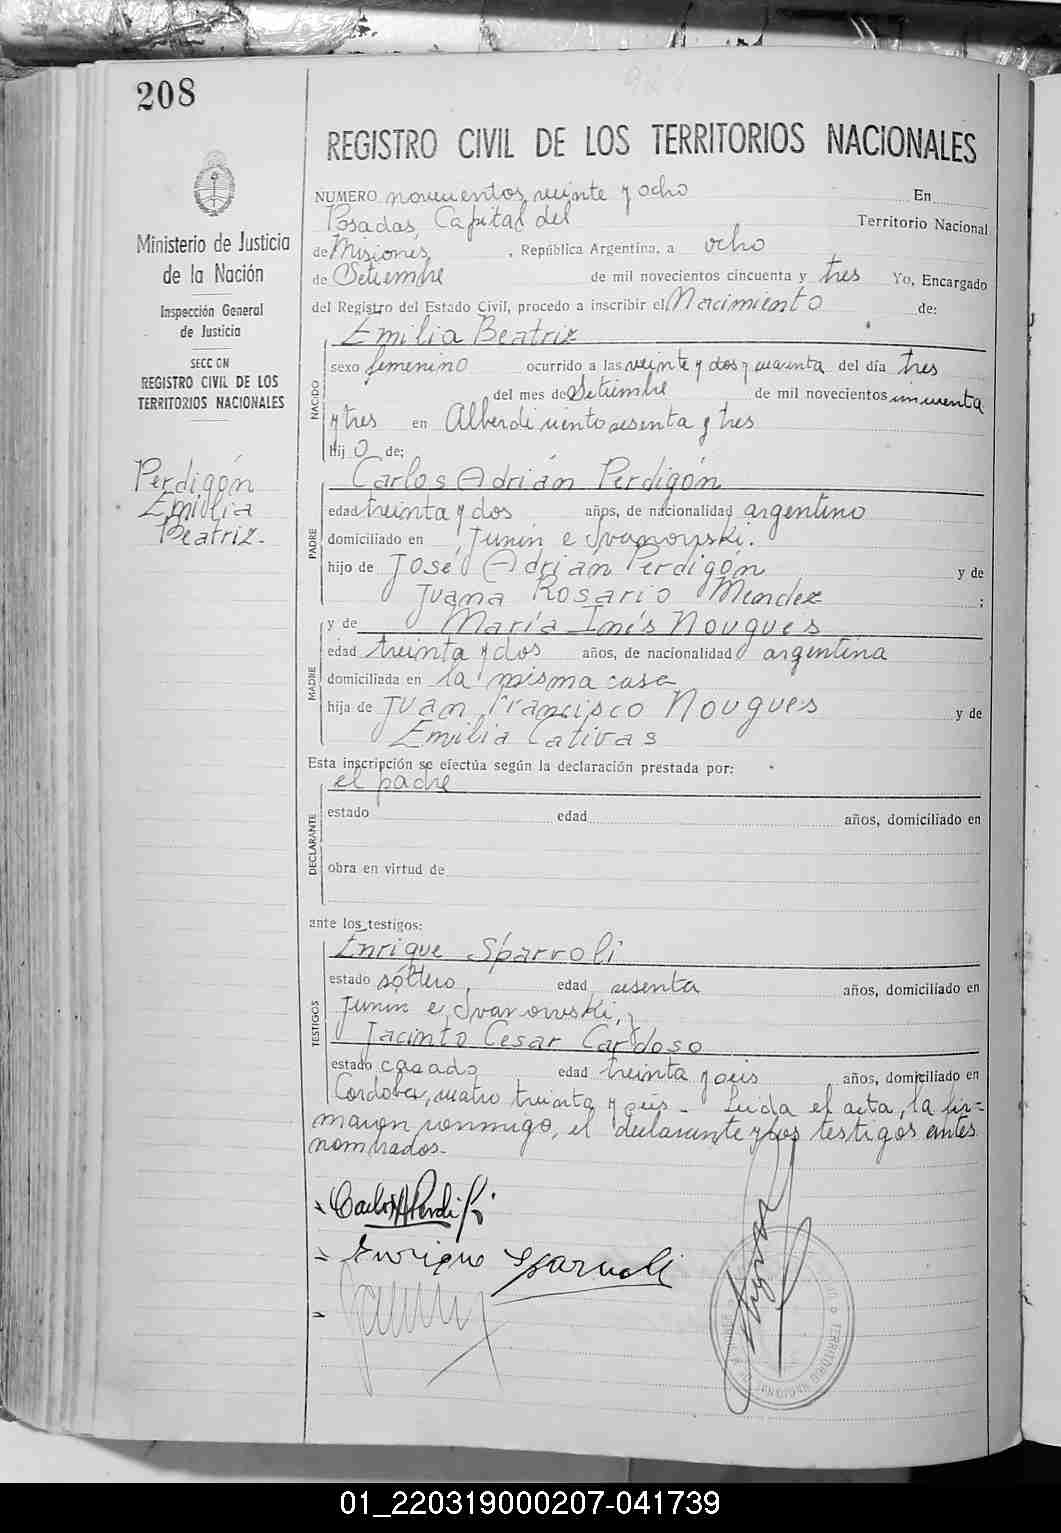 208
REGISTRO CIVIL DE LOS TERRITORIOS NACIONALES
Ministerio de Justicia
de la Nación
Inspección General
de Justicia
SECCION
REGISTRO CIVIL DE LOS
TERRITORIOS NACIONALES
Perdigón
Emilia
Beatriz.
NUMERO novecientos veinte y ocho En
Posadas, Capital del Territorio Nacional
de Misiones, República Argentina, a ocho
de Setiembre de mil novecientos cincuenta y tres Yo, Encargado
del Registro del Estado Civil, procedo a inscribir el Nacimiento de:
Emilia Beatriz
NACIDO
sexo femenino ocurrido a las veinte y dos y cuarenta del día tres
del mes de Setiembre de mil novecientos cincuenta
y tres en Alberdi ciento sesenta y tres
Hij a de;
Carlos Adrián Perdigón
PADRE
edad treinta y dos años, de nacionalidad argentino
domiciliado en Junín e Ivanowski.
hijo de José Adrian Perdigón y de
Juana Rosario Mendez ;
y de María Inés Nougues
MADRE
edad treinta y dos años, de nacionalidad argentina
domiciliada en la misma casa
hija de Juan Francisco Nougues y de
Emilia Cativas
Esta inscripción se efectúa según la declaración prestada por:
el padre
DECLARANTE
estado edad años, domiciliado en
obra en virtud de
ante los testigos:
Enrique Sparvoli
TESTIGOS
estado sóltero, edad sesenta años, domiciliado en
Junin e Ivanowski, y
Jacinto Cesar Cardoso
estado casado edad treinta y seis años, domiciliado en
Cordoba, cuatro treinta y seis - Leida el acta, la fir=
maron conmigo, el declarante y los testigos antes
nombrados.-
Enrique Sparvoli
TERRITORIO NACIONAL
01_220319000207-041739